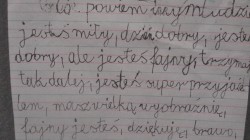 powiem innym ludzio
jesteś miły, dzień dobry, jeste
dobry, ale jesteś fajny, trzymaj
tak dalej, jesteś super przyjacie
lem, masz wielką wyobraźnię,
fajny jesteś, dziękuję, brawo